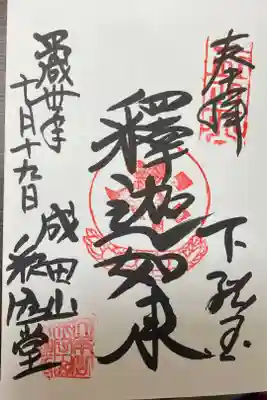 奉拝
下総国
釋迦如来
平成卅年
十月十九日
成田山
釈迦堂